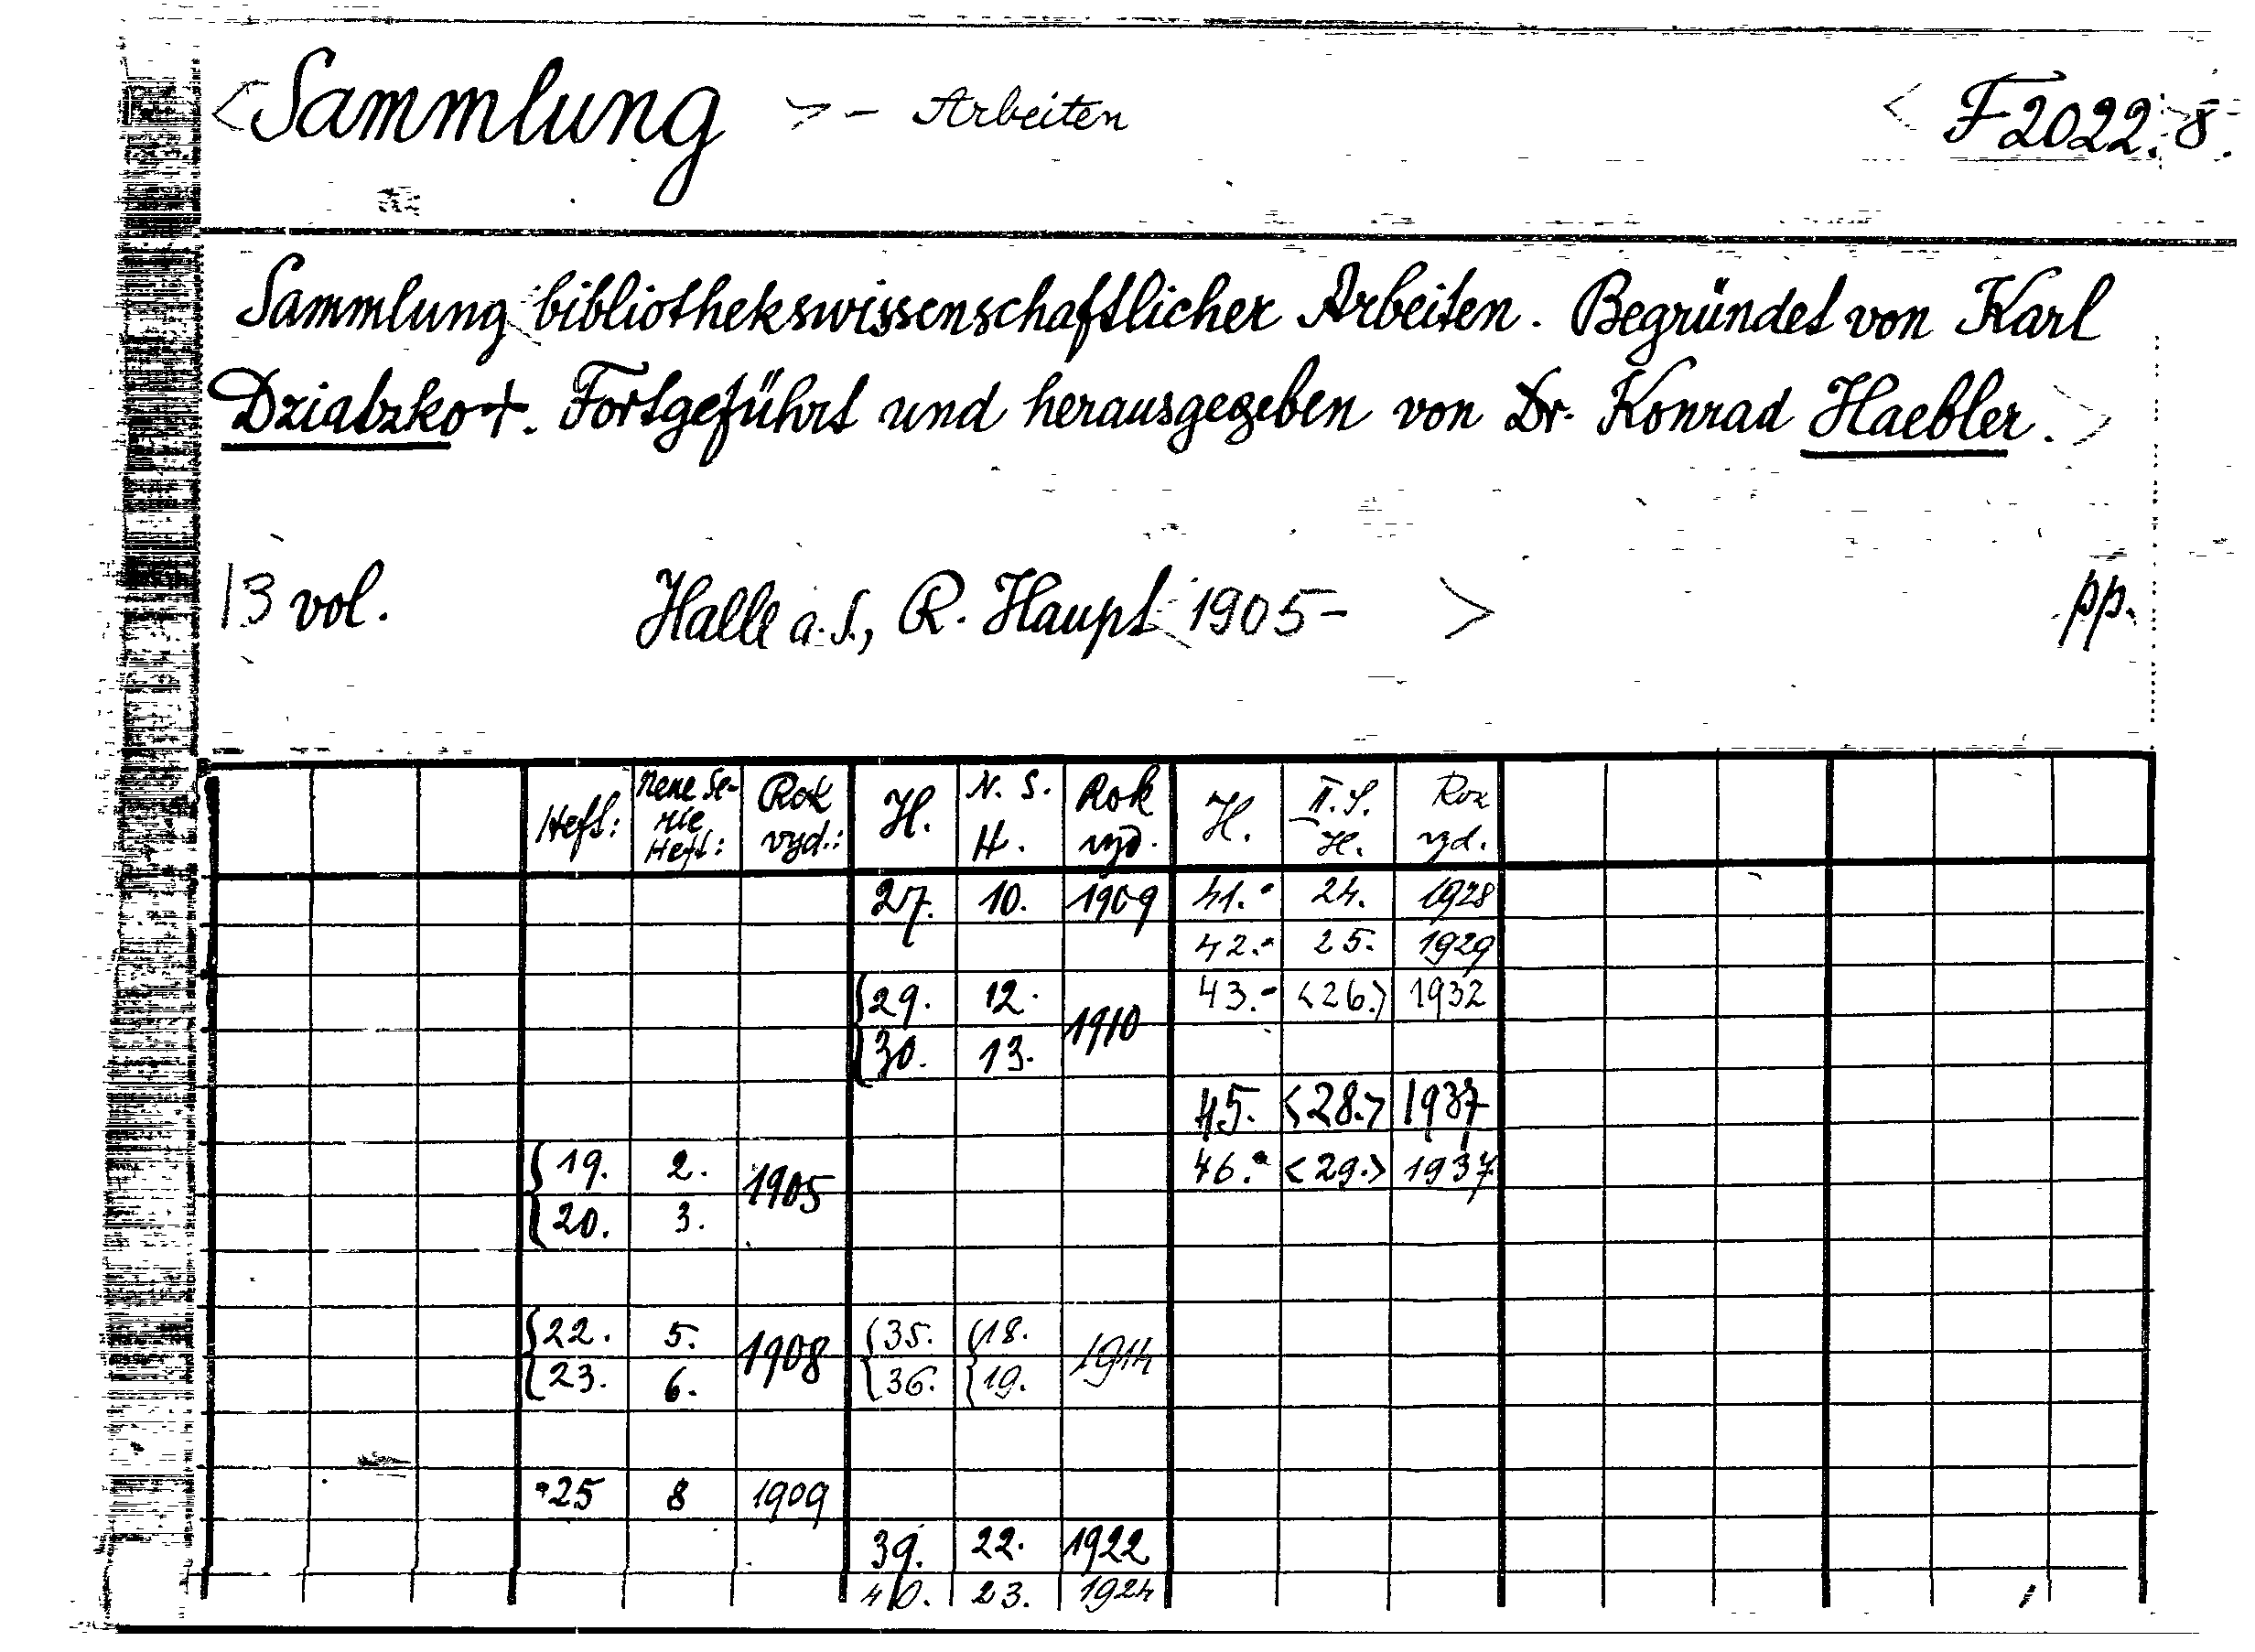 <Sammlung > - Arbeiten < F 2022. 8.
Sammlung bibliothekswissenschaftlicher Arbeiten. Begründet von Karl
Dziatzko +. Fortgeführt und herausgegeben von Dr. Konrad Haebler. >
13 vol. Halle a. S., R. Haupt 1905- > pp.
Heft: Neue Serie Heft: Rok vyd.: H. N. S. H. Rok vyd. H. II. S. H. Rok vyd.
27. 10. 1909 41. 24. 1928
42. 25. 1929
29. 12. 1910 43. <26.> 1932
30. 13.
45. <28.> 1937
19. 2. 1905 46. <29.> 1937
20. 3.
22. 5. 1908 35. 18. 1914
23. 6. 36. 19.
25 8 1909
39. 22. 1922
40. 23. 1924